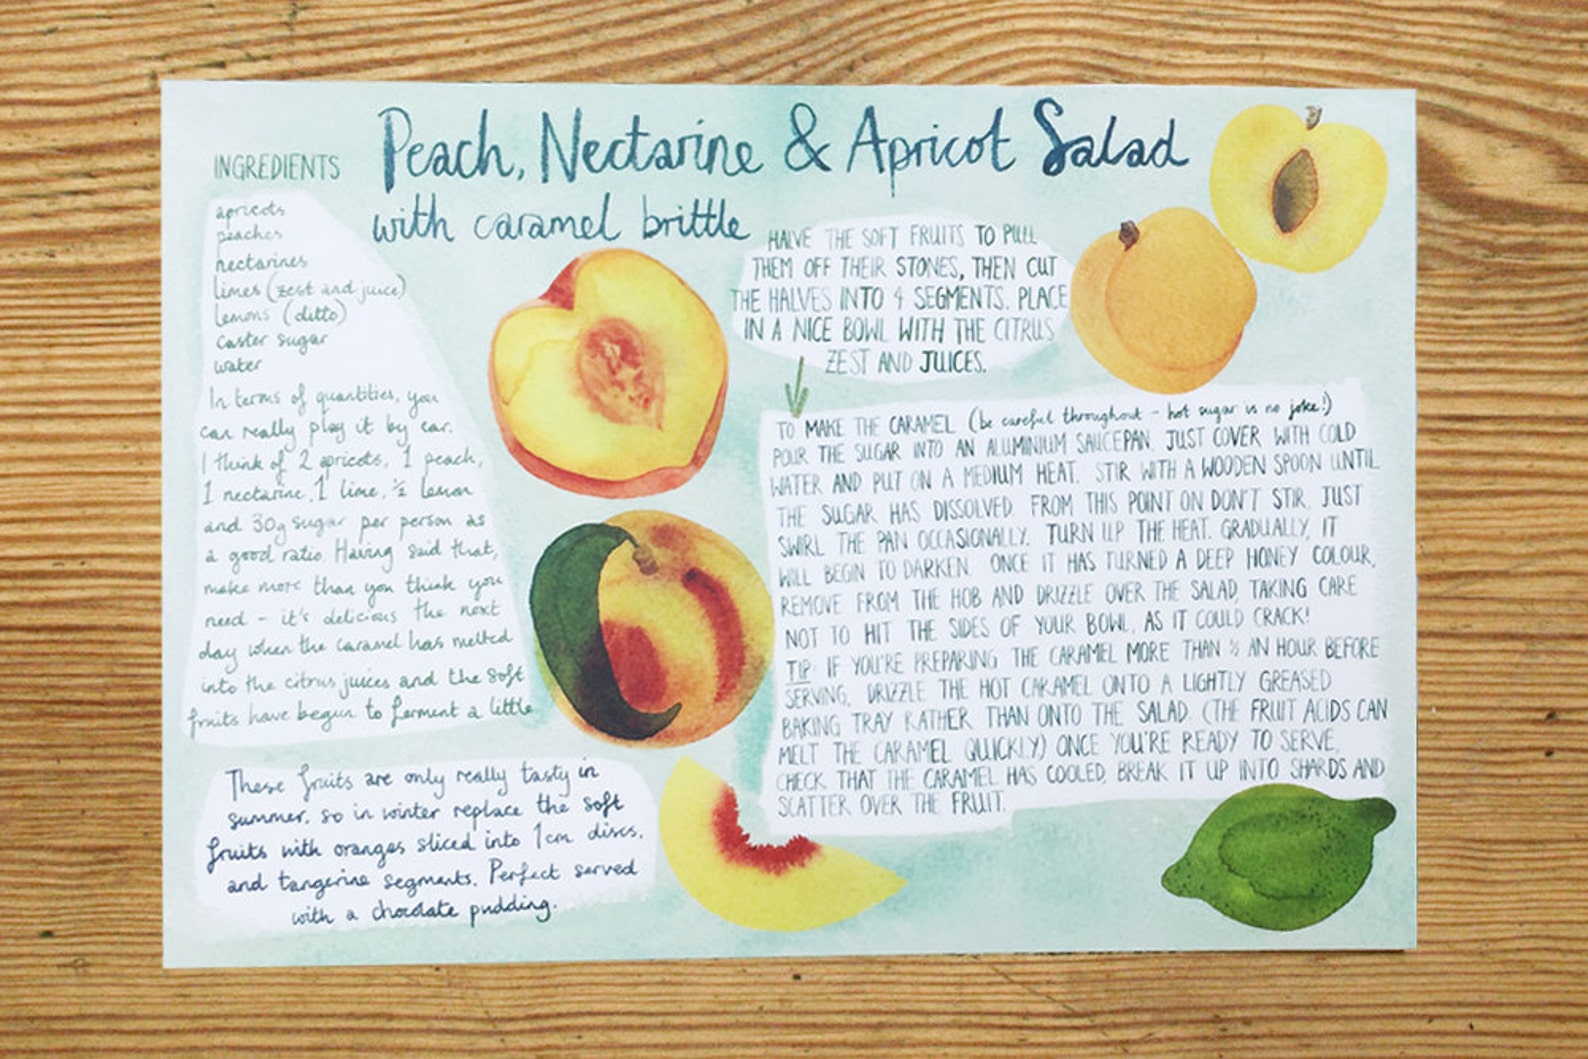 Peach, Nectarine & Apricot Salad
with caramel brittle
INGREDIENTS
apricots
peaches
nectarines
limes (zest and juice)
lemons (ditto)
caster sugar
water
In terms of quantities, you
can really play it by ear.
I think of 2 apricots, 1 peach,
1 nectarine, 1 lime, ½ lemon
and 30g sugar per person as
a good ratio. Having said that,
make more than you think you
need - it's delicious the next
day when the caramel has melted
into the citrus juices and the soft
fruits have begun to ferment a little
These fruits are only really tasty in
summer, so in winter replace the soft
fruits with oranges sliced into 1cm discs,
and tangerine segments. Perfect served
with a chocolate pudding.
HALVE THE SOFT FRUITS TO PULL
THEM OFF THEIR STONES, THEN CUT
THE HALVES INTO 4 SEGMENTS. PLACE
IN A NICE BOWL WITH THE CITRUS
ZEST AND JUICES.
TO MAKE THE CARAMEL (be careful throughout - hot sugar is no joke!)
POUR THE SUGAR INTO AN ALUMINIUM SAUCEPAN. JUST COVER WITH COLD
WATER AND PUT ON A MEDIUM HEAT. STIR WITH A WOODEN SPOON UNTIL
THE SUGAR HAS DISSOLVED. FROM THIS POINT ON DON'T STIR, JUST
SWIRL THE PAN OCCASIONALLY. TURN UP THE HEAT. GRADUALLY, IT
WILL BEGIN TO DARKEN. ONCE IT HAS TURNED A DEEP HONEY COLOUR,
REMOVE FROM THE HOB AND DRIZZLE OVER THE SALAD, TAKING CARE
NOT TO HIT THE SIDES OF YOUR BOWL, AS IT COULD CRACK!
TIP: IF YOU'RE PREPARING THE CARAMEL MORE THAN ½ AN HOUR BEFORE
SERVING, DRIZZLE THE HOT CARAMEL ONTO A LIGHTLY GREASED
BAKING TRAY RATHER THAN ONTO THE SALAD. (THE FRUIT ACIDS CAN
MELT THE CARAMEL QUICKLY) ONCE YOU'RE READY TO SERVE,
CHECK THAT THE CARAMEL HAS COOLED, BREAK IT UP INTO SHARDS AND
SCATTER OVER THE FRUIT.